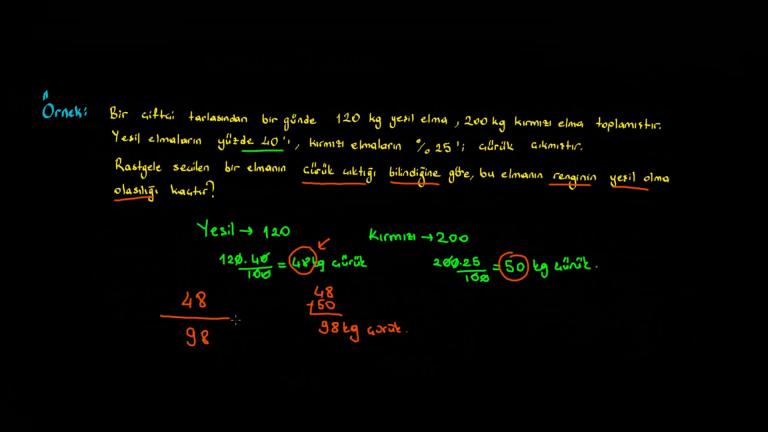 Örnek: Bir çiftçi tarlasından bir günde 120 kg yeşil elma, 200 kg kırmızı elma toplamıştır.
Yeşil elmaların yüzde 40'ı, kırmızı elmaların %25'i çürük çıkmıştır.
Rastgele seçilen bir elmanın çürük çıktığı bilindiğine göre, bu elmanın renginin yeşil olma
olasılığı kaçtır?
Yeşil → 120 Kırmızı → 200
120.40/100 = 48kg çürük 200.25/100 = 50 kg çürük.
48/98
48
+50
98kg çürük.